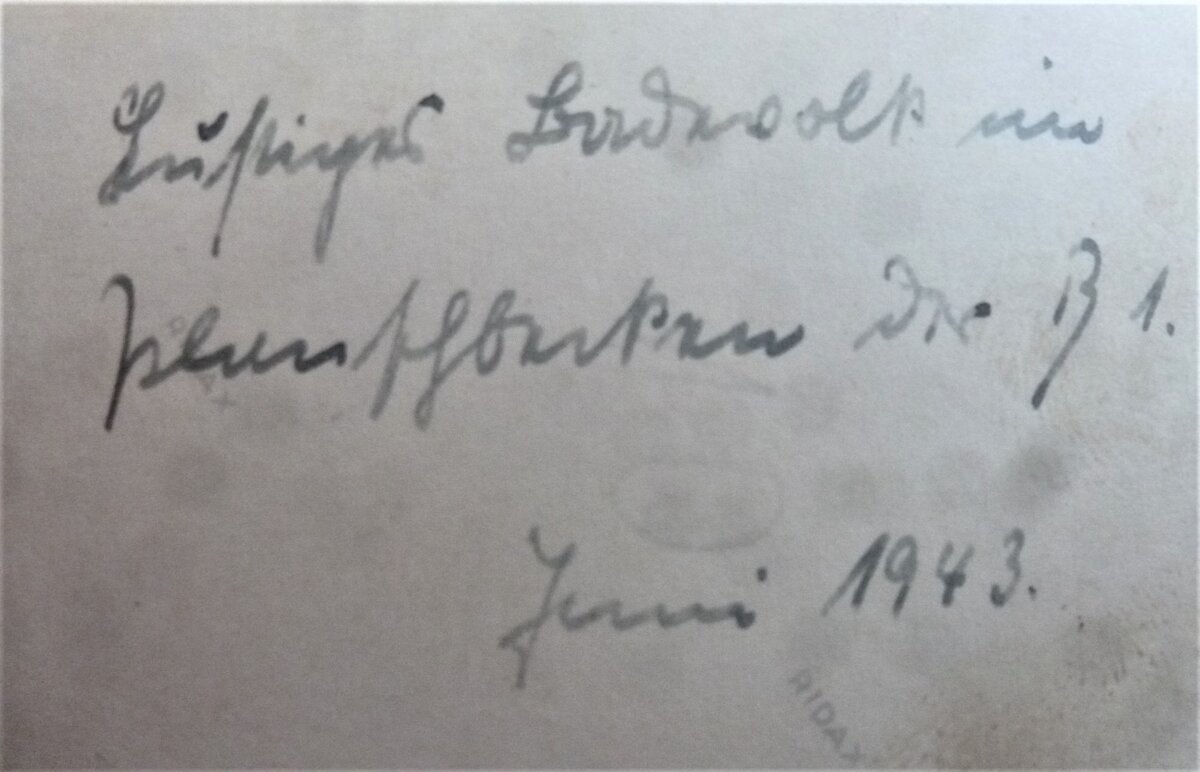 Lustiges Badevolk im
Planschbecken der B 1.
Juni 1943.
RIDAX